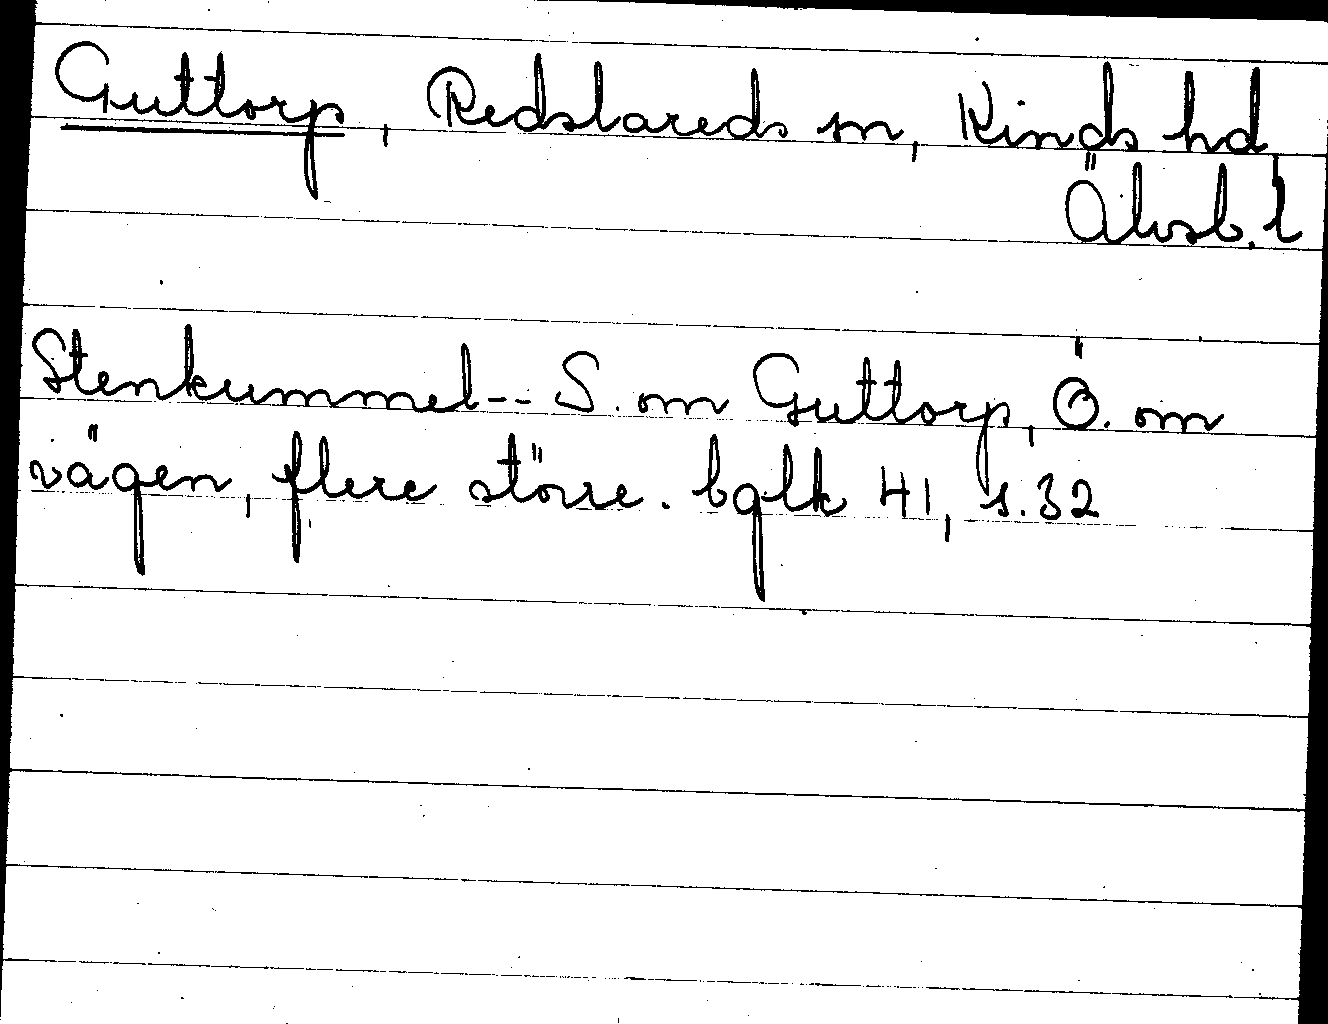 Guttorp, Redslareds sn, Kinds hd,
Älvsb. l
Stenkummel-- S. om Guttorp, Ö. om
vägen, flere större. bglk 41, s. 32